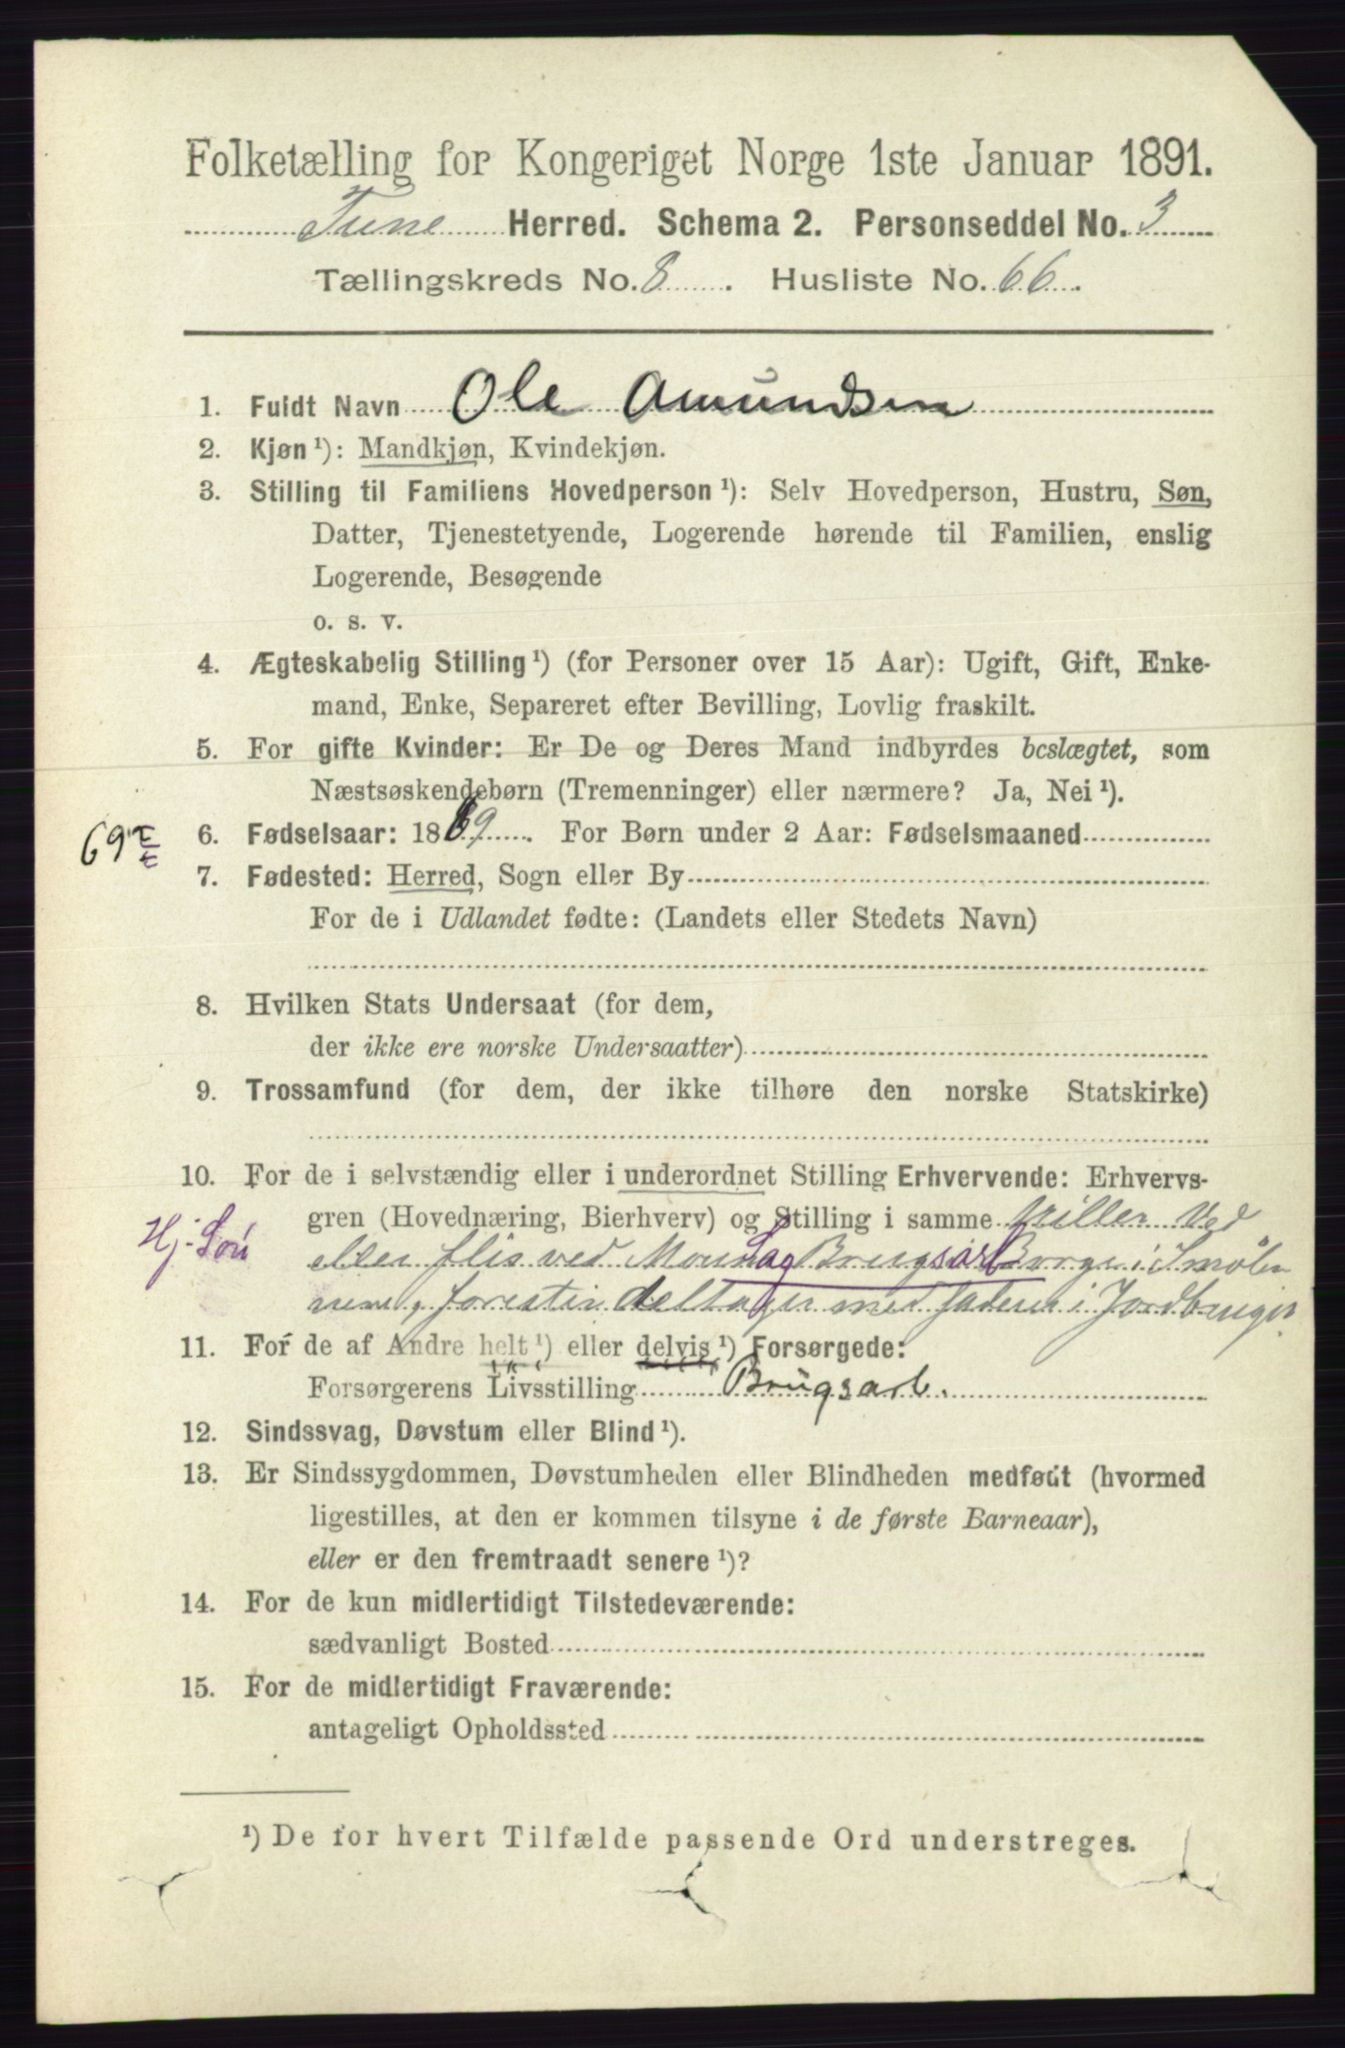 Folketælling for Kongeriget Norge 1ste Januar 1891.
Tune Herred. Schema 2. Personseddel No. 3
Tællingskreds No. 8. Husliste No. 66.
1. Fuldt Navn Ole Amundsen
2. Kjøn ¹): Mandkjøn, Kvindekjøn.
3. Stilling til Familiens Hovedperson ¹): Selv Hovedperson, Hustru, Søn,
Datter, Tjenestetyende, Logerende hørende til Familien, enslig
Logerende, Besøgende
o. s. v.
4. Ægteskabelig Stilling ¹) (for Personer over 15 Aar): Ugift, Gift, Enke-
mand, Enke, Separeret efter Bevilling, Lovlig fraskilt.
5. For gifte Kvinder: Er De og Deres Mand indbyrdes beslægtet, som
Næstsøskendebørn (Tremenninger) eller nærmere? Ja, Nei ¹).
69
6. Fødselsaar: 1869. For Børn under 2 Aar: Fødselsmaaned
7. Fødested: Herred, Sogn eller By
For de i Udlandet fødte: (Landets eller Stedets Navn)
8. Hvilken Stats Undersaat (for dem,
der ikke ere norske Undersaatter)
9. Trossamfund (for dem, der ikke tilhøre den norske Statskirke)
10. For de i selvstændig eller i underordnet Stilling Erhvervende: Erhvervs-
gren (Hovednæring, Bierhverv) og Stilling i samme Ved
Hj. Søn
eller flis ved Sag Brugsarb Borge i
deltager med faderen i Jordbruget
11. For de af Andre helt ¹) eller delvis ¹) Forsørgede:
Forsørgerens Livsstilling Brugsarb.
12. Sindssvag, Døvstum eller Blind ¹).
13. Er Sindssygdommen, Døvstumheden eller Blindheden medfødt (hvormed
ligestilles, at den er kommen tilsyne i de første Barneaar),
eller er den fremtraadt senere ¹)?
14. For de kun midlertidigt Tilstedeværende:
sædvanligt Bosted
15. For de midlertidigt Fraværende:
antageligt Opholdssted
¹) De for hvert Tilfælde passende Ord understreges.